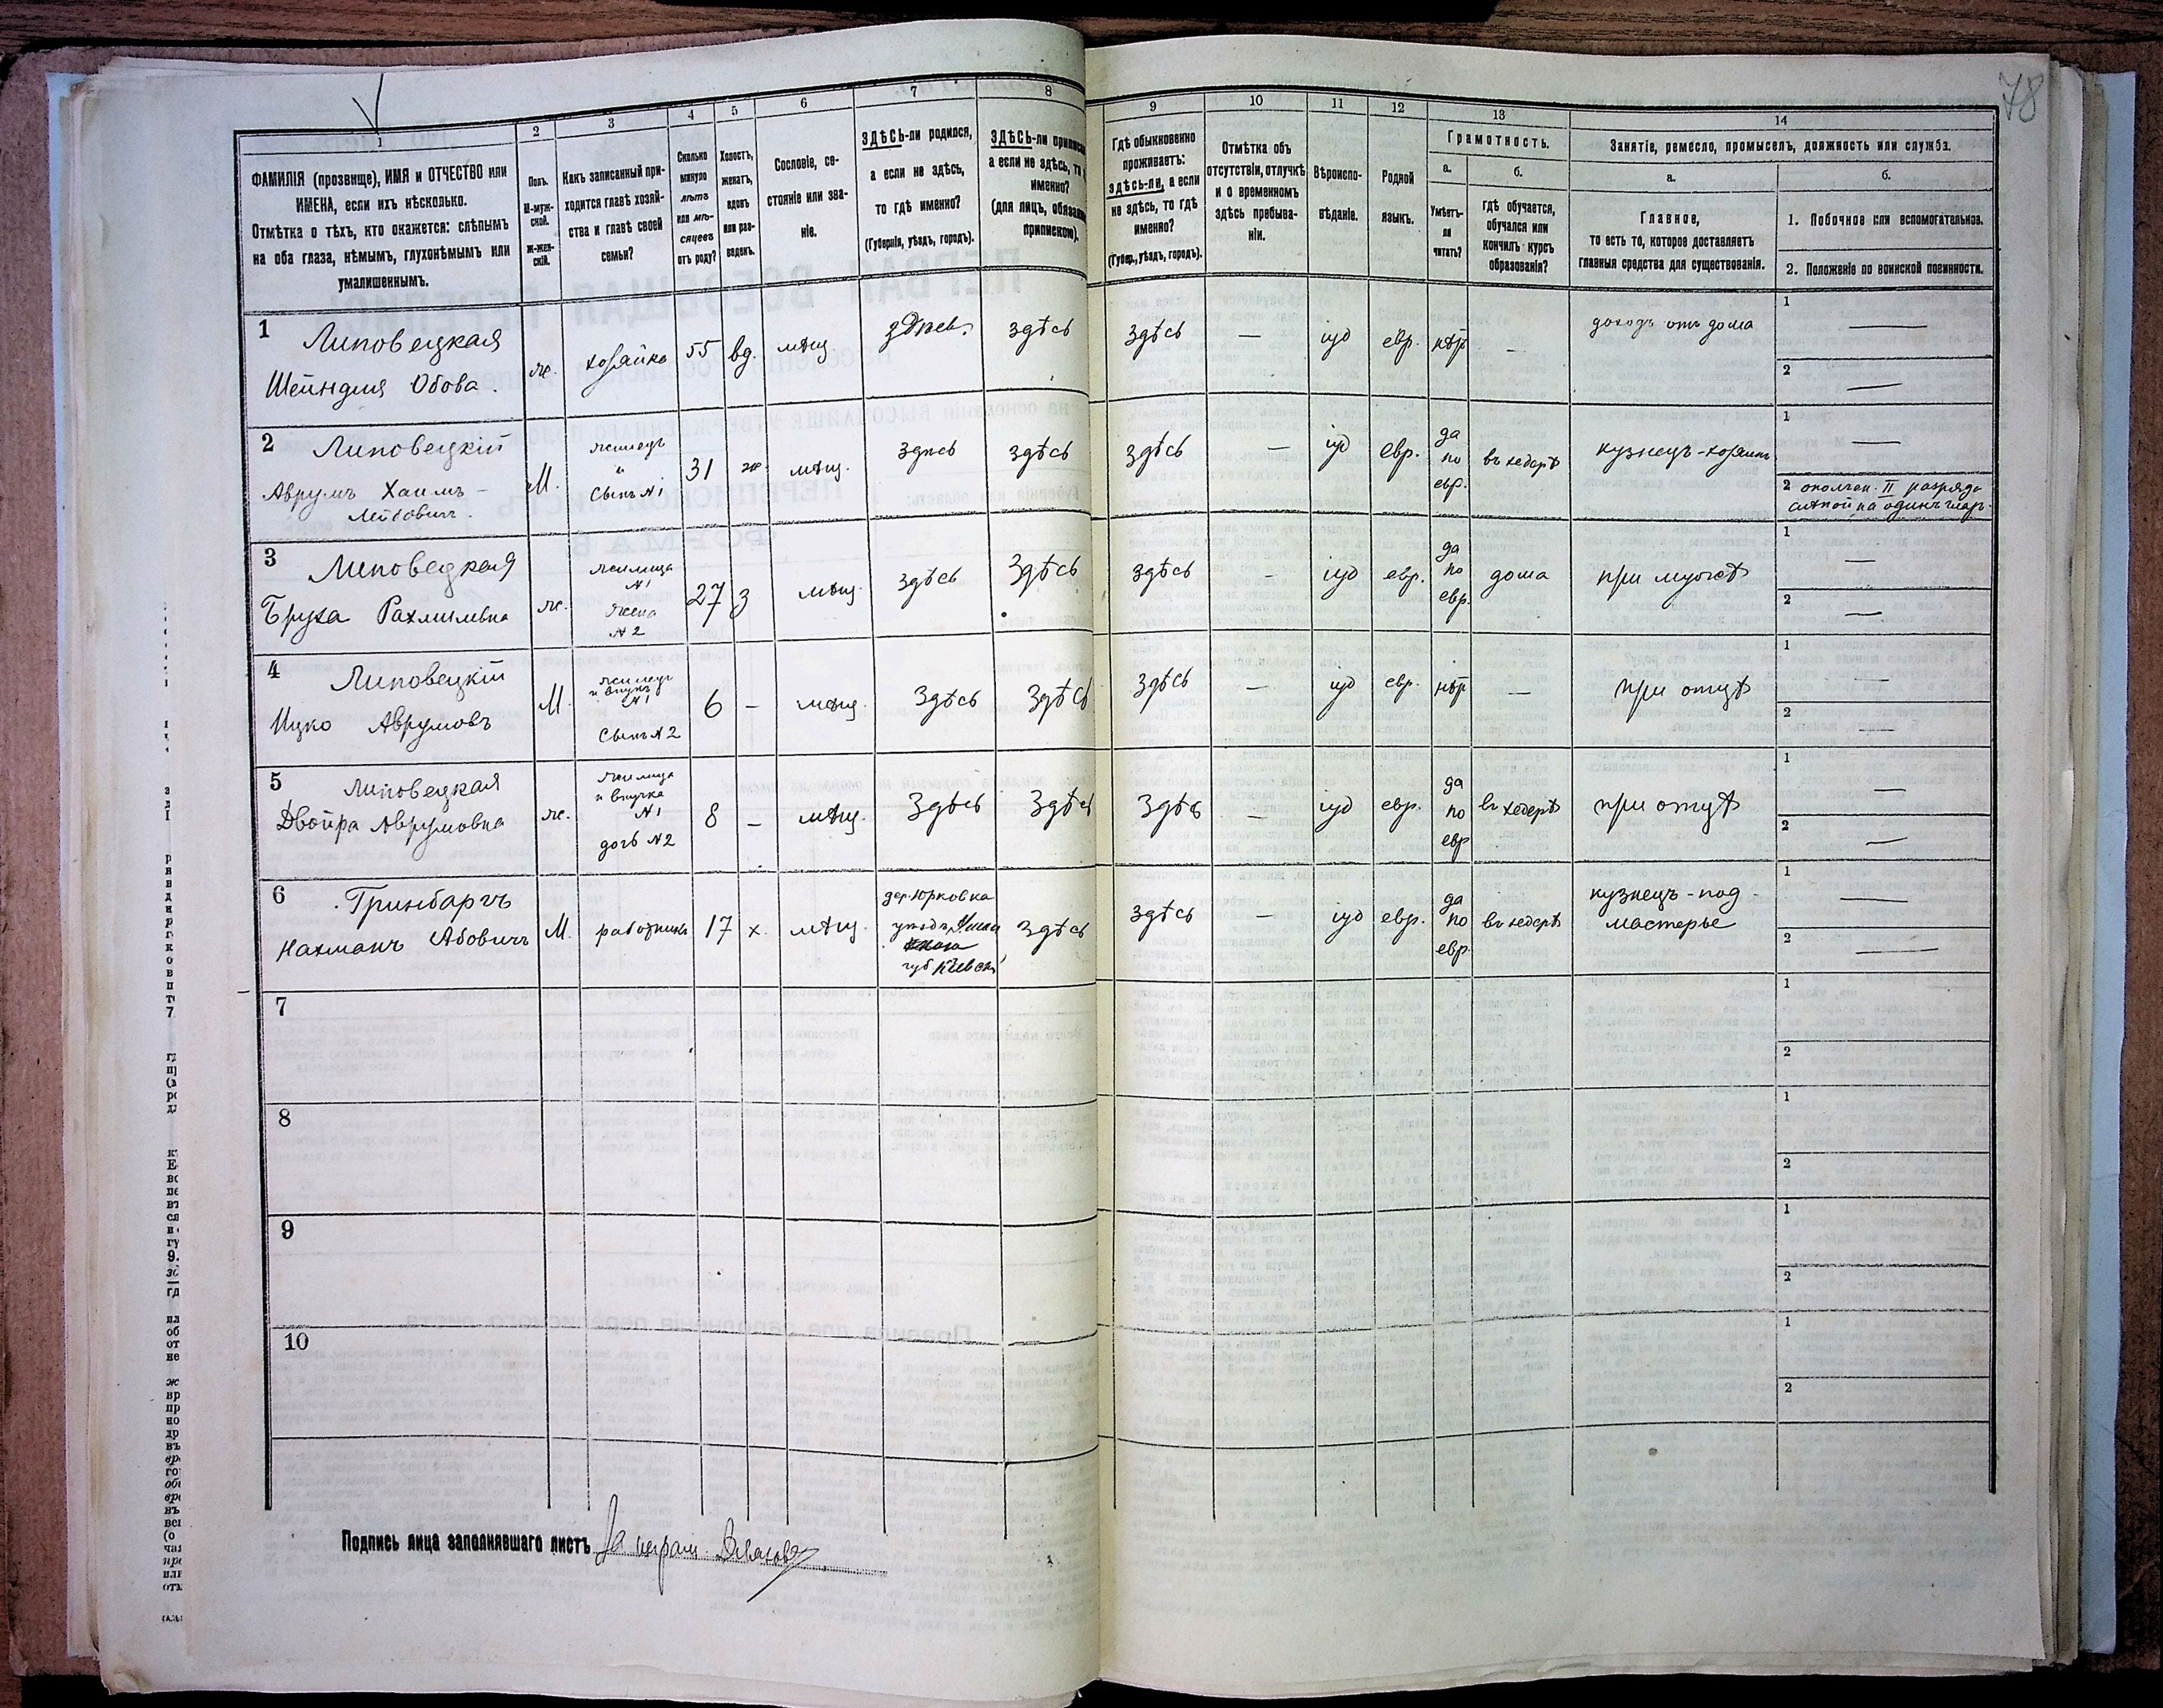 78
1
2
3
4
5
6
7
8
9
10
11
12
13
14
ФАМИЛІЯ (прозвище), ИМЯ и ОТЧЕСТВО или
ИМЕНА, если ихъ нѣсколько.
Отмѣтка о тѣхъ, кто окажется: слѣпымъ
на оба глаза, нѣмымъ, глухонѣмымъ или
умалишеннымъ.
Полъ.
М-муж-
ской.
Ж-жен-
скій.
Какъ записанный при-
ходится главѣ хозяй-
ства и главѣ своей
семьи?
Сколько
минуло
лѣтъ
или мѣ-
сяцевъ
отъ роду?
Холостъ,
женатъ,
вдовъ
или раз-
веденъ.
Сословіе, со-
стояніе или зва-
ніе.
ЗДѢСЬ-ли родился,
а если не здѣсь,
то гдѣ именно?
(Губернія, уѣздъ, городъ).
ЗДѢСЬ-ли приписа
а если не здѣсь, то
именно?
(для лицъ, обязан
припискою).
Гдѣ обыкновенно
проживаетъ:
здѣсь-ли, а если
не здѣсь, то гдѣ
именно?
(Губер., уѣздъ, городъ).
Отмѣтка объ
отсутствіи, отлучкѣ
и о временномъ
здѣсь пребыва-
ніи.
Вѣроиспо-
вѣданіе.
Родной
языкъ.
Грамотность.
а.
Умѣетъ-
ли
читать?
б.
гдѣ обучается,
обучался или
кончилъ курсъ
образованія?
Занятіе, ремесло, промыселъ, должность или служба.
а.
Главное,
то есть то, которое доставляетъ
главныя средства для существованія.
б.
1. Побочное или вспомогательное.
2. Положеніе по воинской повинности.
1 Липовецкая
Шейндля Обова.
ж. хозяйка 55 вд. мѣщ здѣсь здѣсь здѣсь — іуд евр. нѣтъ — доходъ отъ дома
1 —
2 —
2 Липовецкій
Аврумъ Хаимъ-
Лейбовичъ.
М. жилецъ
и
Сынъ №1
31 ж мѣщ. здѣсь здѣсь здѣсь — іуд евр.
да
по
евр.
въ хедерѣ кузнецъ-хозяинъ
1 —
2 ополчен. II разряда
3 Липовецкая
Бруха Рахмилевна
ж. жилица
№1
жена
№2
27 з мѣщ. здѣсь здѣсь здѣсь — іуд евр.
да
по
евр.
дома при мужѣ
1 —
2 —
4 Липовецкій
Ицко Аврумовъ
М. жилецъ
и внукъ
№1
Сынъ №2
6 — мѣщ. здѣсь здѣсь здѣсь — іуд евр. нѣтъ — при отцѣ
1 —
2 —
5 Липовецкая
Двойра Аврумовна
ж. жилица
и внучка
№1
дочь №2
8 — мѣщ. здѣсь здѣсь здѣсь — іуд евр.
да
по
евр
въ хедерѣ при отцѣ
1 —
2 —
6 Гринбаргъ
Нахманъ Абовичъ
М. работникъ 17 х. мѣщ.
дер Юрковка
уѣздъ Уман
губ Кіевск
здѣсь здѣсь — іуд евр.
да
по
евр
въ хедерѣ кузнецъ-под-
мастерье
1 —
2 —
7
1
2
8
1
2
9
1
2
10
1
2
Подпись лица заполнявшаго листъ